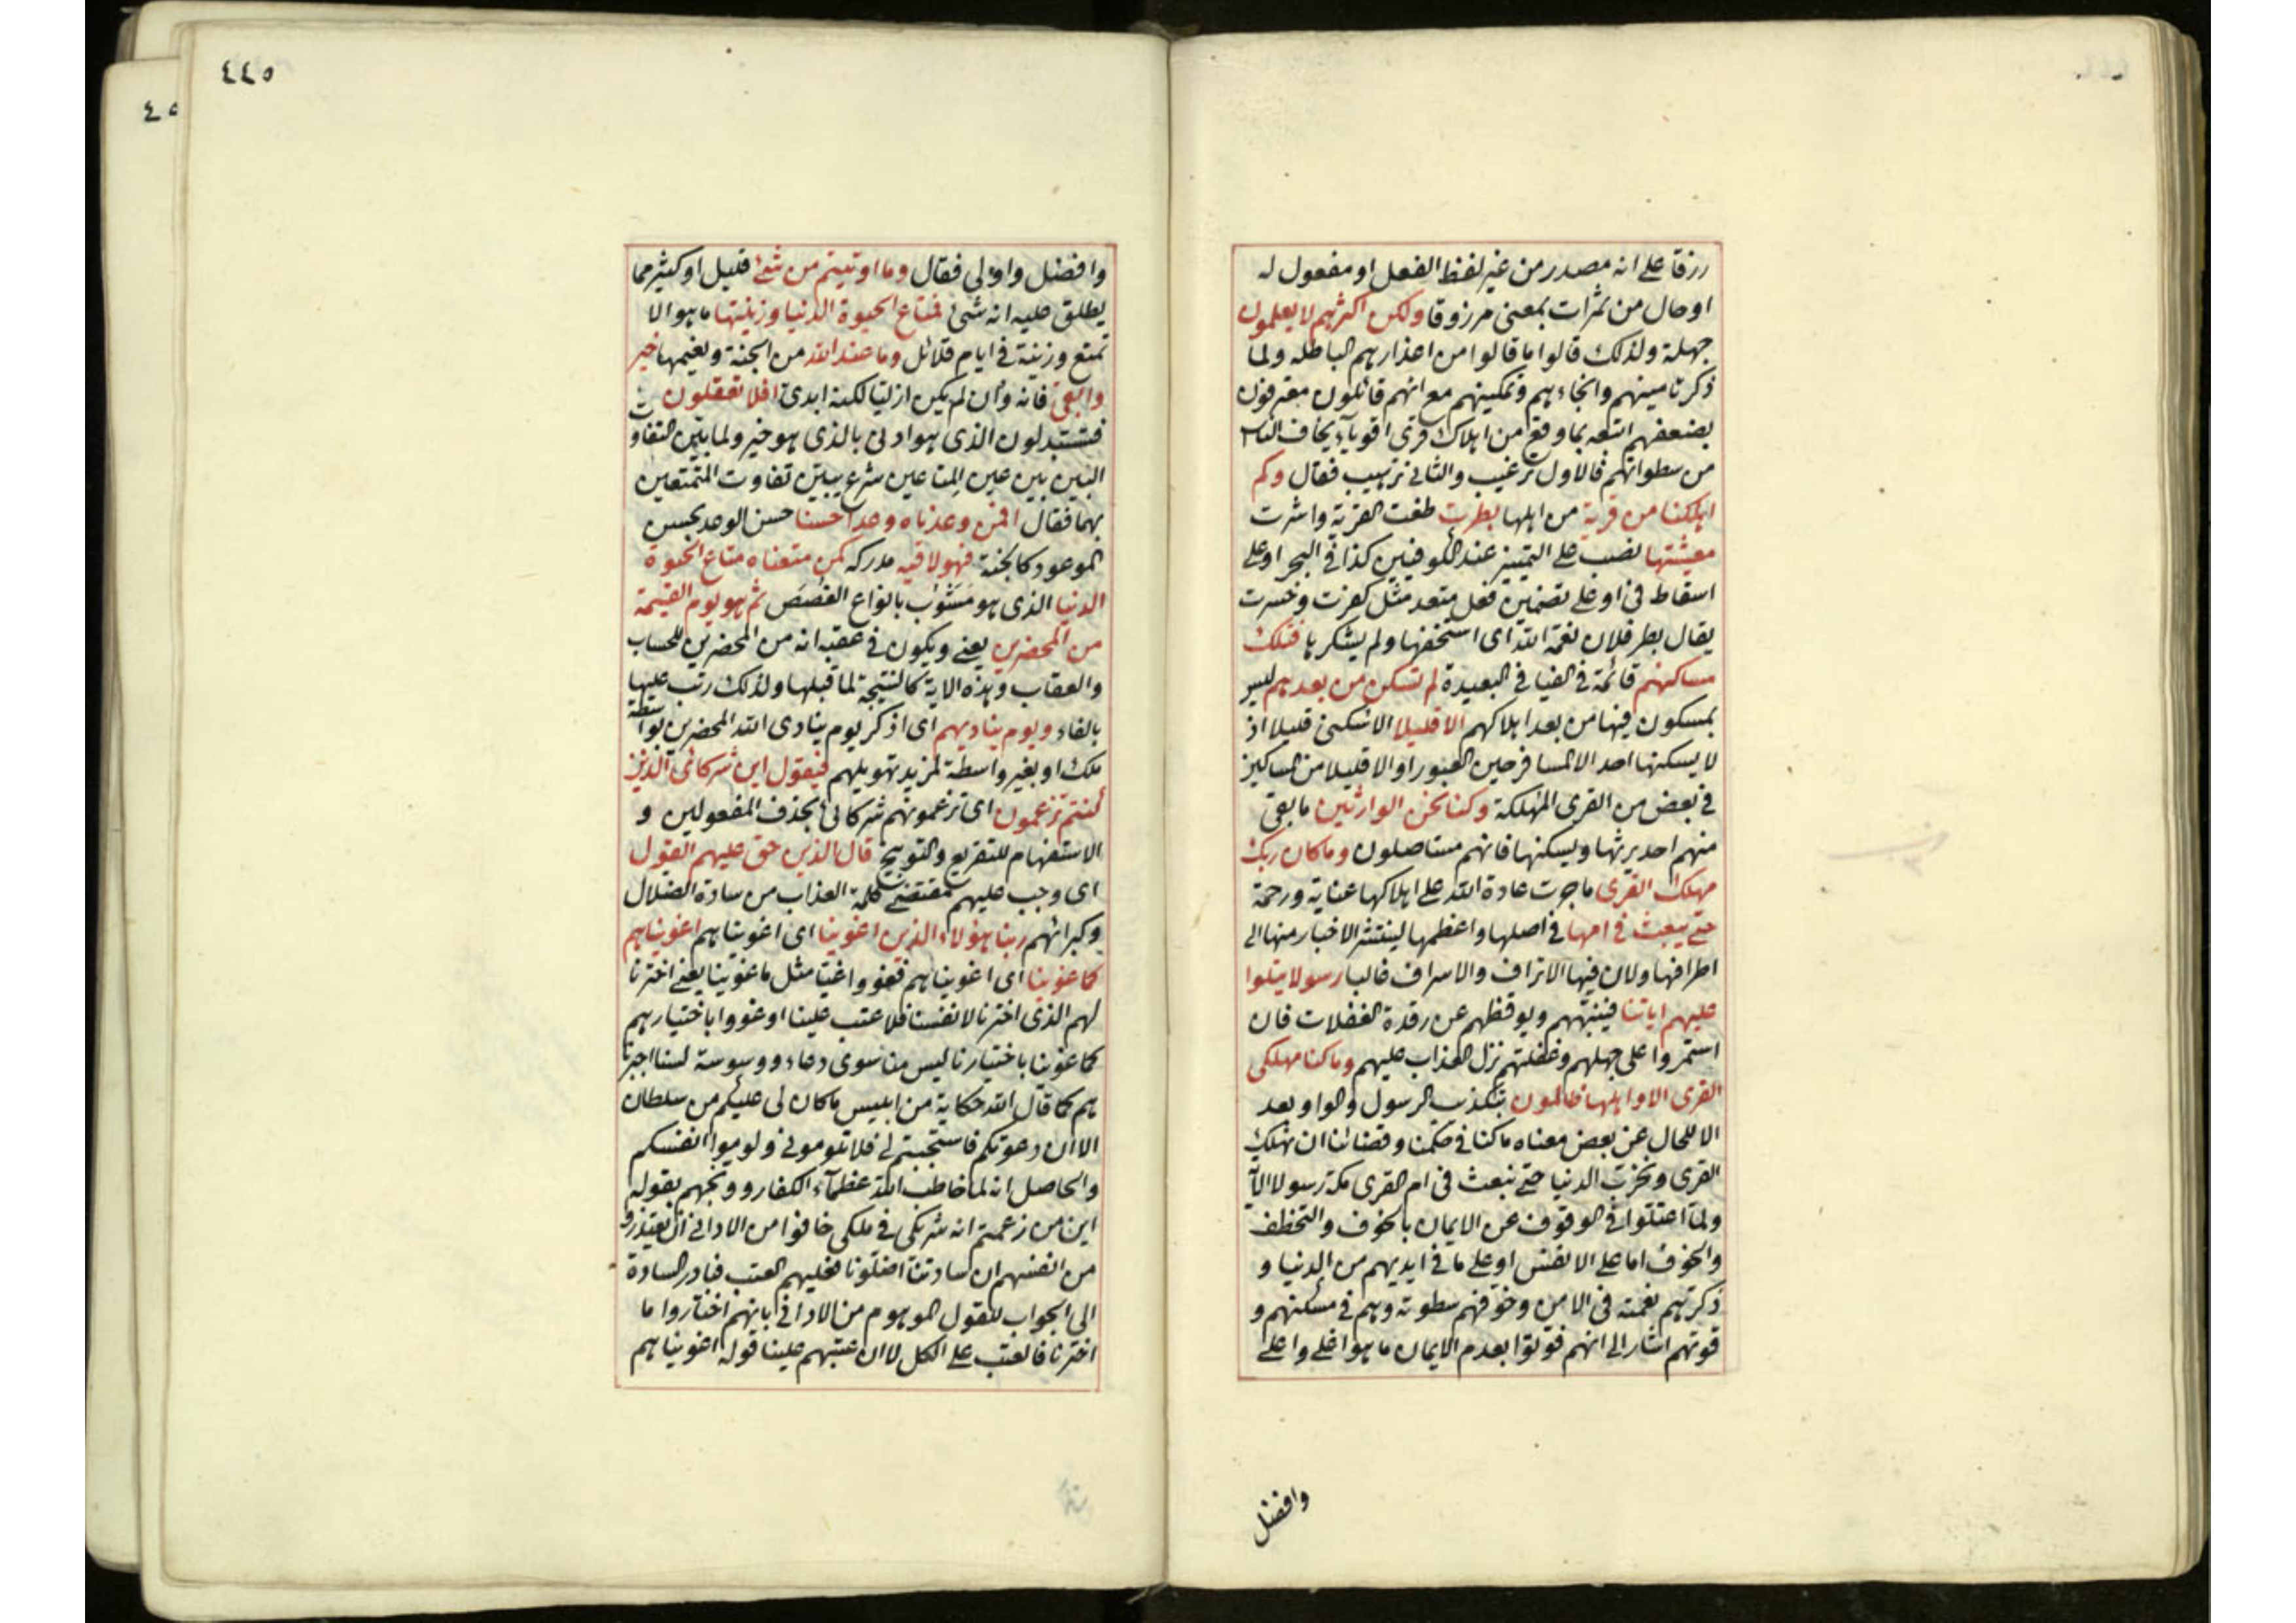 رزقا على انه مصدر من غير لفظ الفعل او مفعول له
او حال من ثمرات بمعنى مرزوقا ولكن اكثرهم لا يعلمون
جهلة ولذلك قالوا ما قالوا من اعذارهم الباطله ولما
ذكر تامينهم وانجاءهم وتمكينهم مع انهم قائلون معترفون
بضعفهم اتبعه بما وقع من اهلاك قرى اقوياء يخاف الناس
من سطواتهم فالاول ترغيب والثانى ترهيب فقال وكم
اهلكنا من قرية من اهلها بطرت طغت القرية واشرت
معيشتها نصب على التمييز عند الكوفيين كذا فى البحر او على
اسقاط فى او على تضمين فعل متعد مثل كفرت وخسرت
يقال بطر فلان نعمة الله اى استخفها ولم يشكرها فتلك
مساكنهم قائمة فى الفيافى البعيدة لم تسكن من بعدهم ليس
بمسكون فيها من بعد اهلاكهم الا قليلا الا سكنى قليلا اذ
لا يسكنها احد الا المسافر حين العبور او الا قليلا من المساكين
فى بعض من القرى المهلكة وكنا نحن الوارثين ما بقى
منهم احد يرثها ويسكنها فانهم مستاصلون وما كان ربك
مهلك القرى ما جرت عادة الله على اهلاكها عناية ورحمة
حتى يبعث فى امها فى اصلها واعظمها لينتشر الاخبار منها الى
اطرافها ولان فيها الاتراف والاسراف غالبا رسولا يتلوا
عليهم اياتنا فينبههم ويوقظهم عن رقدة الغفلات فان
استمروا على جهلهم وغفلتهم نزل العذاب عليهم وما كنا مهلكى
القرى الا واهلها ظالمون بتكذيب الرسول والواو بعد
الا للحال عن بعض معناه ما كنا فى حكمنا وقضائنا ان نهلك
القرى ونخرب الدنيا حتى نبعث فى ام القرى مكة رسولا الآية
ولما اعتلوا فى الوقوف عن الايمان بالخوف والتخطف
والخوف اما على الانفس او على ما فى ايديهم من الدنيا و
ذكرهم نعمته فى الامن وخوفهم سطوته وهم فى مسكنهم و
قوتهم اشار الى انهم فوتوا بعدم الايمان ما هو اغلى واعلى
وافضل
٤٤٥
٤٥
وافضل واولى فقال وما اوتيتم من شئ قليل او كثير مما
يطلق عليه انه شئ فمتاع الحيوة الدنيا وزينتها ما هو الا
تمتع وزينة فى ايام قلائل وما عند الله من الجنة ونعيمها خير
وابقى فانه وان لم يكن ازليا لكنه ابدى افلا تعقلون
فتستبدلون الذى هو ادنى بالذى هو خير ولما بين التفاوت
البين بين عين المتاعين شرع يبين تفاوت المتمتعين
بهما فقال افمن وعدناه وعدا حسنا حسن الوعد بحسن
الموعود كالجنة فهو لاقيه مدركه كمن متعناه متاع الحيوة
الدنيا الذى هو مشوب بانواع الغصص ثم هو يوم القيمة
من المحضرين يعنى ويكون فى عقبه انه من المحضرين للحساب
والعقاب وهذه الاية كالنتيجة لما قبلها ولذلك رتب عليها
بالفاء ويوم يناديهم اى اذكر يوم ينادى الله المحضرين بواسطة
ملك او بغير واسطة لمزيد تهويلهم فيقول اين شركائى الذين
كنتم تزعمون اى تزعمونهم شركائى بحذف المفعولين و
الاستفهام للتقريع والتوبيخ قال الذين حق عليهم القول
اى وجب عليهم بمقتضى كلمة العذاب من سادة الضلال
وكبرائهم ربنا هؤلاء الذين اغوينا اى اغويناهم اغويناهم
كما غوينا اى اغويناهم فغووا غيا مثل ما غوينا يعنى اخترنا
لهم الذى اخترنا لانفسنا فلا عتب علينا او غووا باختيارهم
كما غوينا باختيارنا ليس منا سوى دعاء ووسوسة لسنا اجبرنا
هم كما قال الله حكاية من ابليس ما كان لى عليكم من سلطان
الا ان دعوتكم فاستجبتم لى فلا تلومونى ولوموا انفسكم
والحاصل انه لما خاطب الله عظماء الكفار ووبخهم بقوله
اين من زعمتم انه شريكى فى ملكى خافوا من الادانى ان يعتذروا
من انفسهم ان ساداتنا اضلونا فعليهم العتب فبادر السادة
الى الجواب للقول الموهوم من الادانى بانهم اختاروا ما
اخترنا فالعتب على الكل لا ان عتبهم علينا قوله اغويناهم